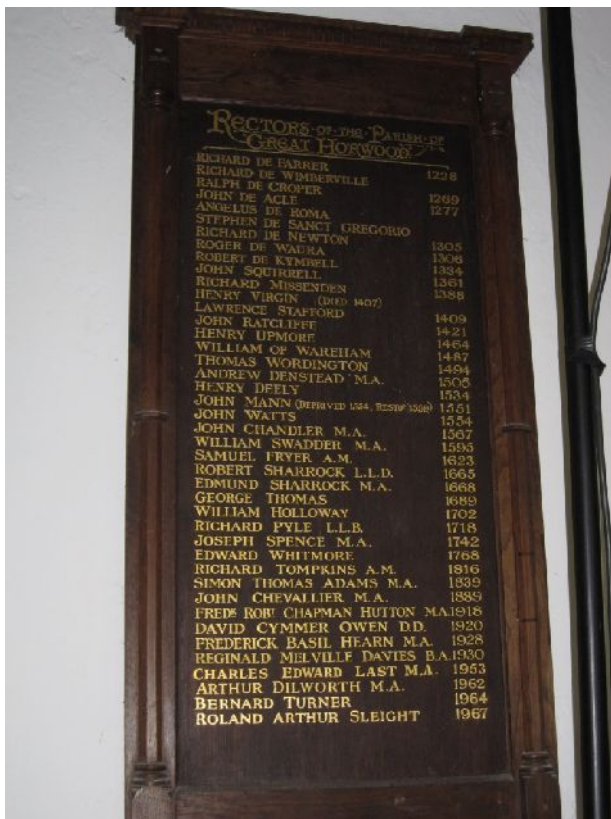 RECTORS · OF · THE · PARISH · OF
GREAT HORWOOD
RICHARD DE FARRER 1228
RICHARD DE WIMBERVILLE
RALPH DE CROPER 1269
JOHN DE ACLE 1277
ANGELUS DE ROMA
STEPHEN DE SANCT GREGORIO
RICHARD DE NEWTON 1305
ROGER DE WAURA 1306
ROBERT DE KYMBELL 1334
JOHN SQUIRRELL 1361
RICHARD MISSENDEN 1388
HENRY VIRGIN (DIED 1407)
LAWRENCE STAFFORD 1409
JOHN RATCLIFFE 1421
HENRY UPMORE 1464
WILLIAM OF WAREHAM 1487
THOMAS WORDINGTON 1494
ANDREW DENSTEAD M.A. 1505
HENRY DEELY 1534
JOHN MANN (DEPRIVED 1554, RESTD 1558) 1551
JOHN WATTS 1554
JOHN CHANDLER M.A. 1567
WILLIAM SWADDER M.A. 1595
SAMUEL FRYER A.M. 1623
ROBERT SHARROCK L.L.D. 1665
EDMUND SHARROCK M.A. 1668
GEORGE THOMAS 1689
WILLIAM HOLLOWAY 1702
RICHARD PYLE L.L.B. 1718
JOSEPH SPENCE M.A. 1742
EDWARD WHITMORE 1768
RICHARD TOMPKINS A.M. 1816
SIMON THOMAS ADAMS M.A. 1839
JOHN CHEVALLIER M.A. 1889
FREDK ROBT CHAPMAN HUTTON M.A. 1918
DAVID CYMMER OWEN D.D. 1920
FREDERICK BASIL HEARN M.A. 1928
REGINALD MELVILLE DAVIES B.A. 1930
CHARLES EDWARD LAST M.A. 1953
ARTHUR DILWORTH M.A. 1962
BERNARD TURNER 1964
ROLAND ARTHUR SLEIGHT 1967